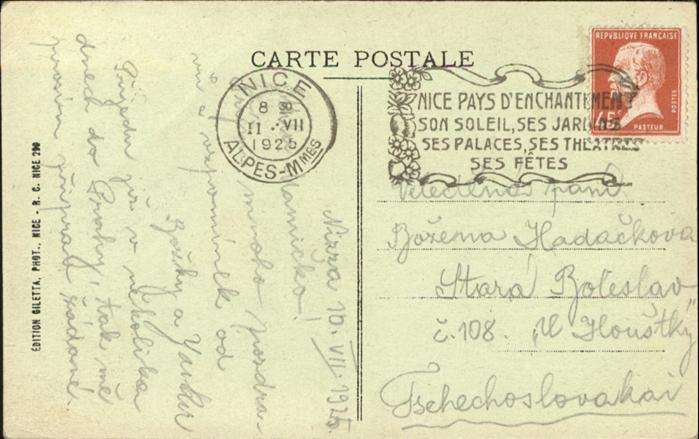 CARTE POSTALE
NICE
8
11 · VII
1925
ALPES-MMES
NICE PAYS D'ENCHANTEMENT
SON SOLEIL, SES JARDINS
SES PALACES, SES THEATRES
SES FÊTES
REPVBLIQVE FRANÇAISE
45c
POSTES
PASTEUR
ÉDITION GILETTA, PHOT., NICE - R. C. NICE 290
Nizza 10. VII. 1925.
Mamičko!
mnoho pozdra-
vů a vzpomínek od
Boženky a
Přijedu již v několika
dnech do Prahy, tak mě
prosím připrav žádané.
Velectěná paní
Božena Hadačkova
Stará Boleslav
č. 108. U Houštky
Tschechoslovakai